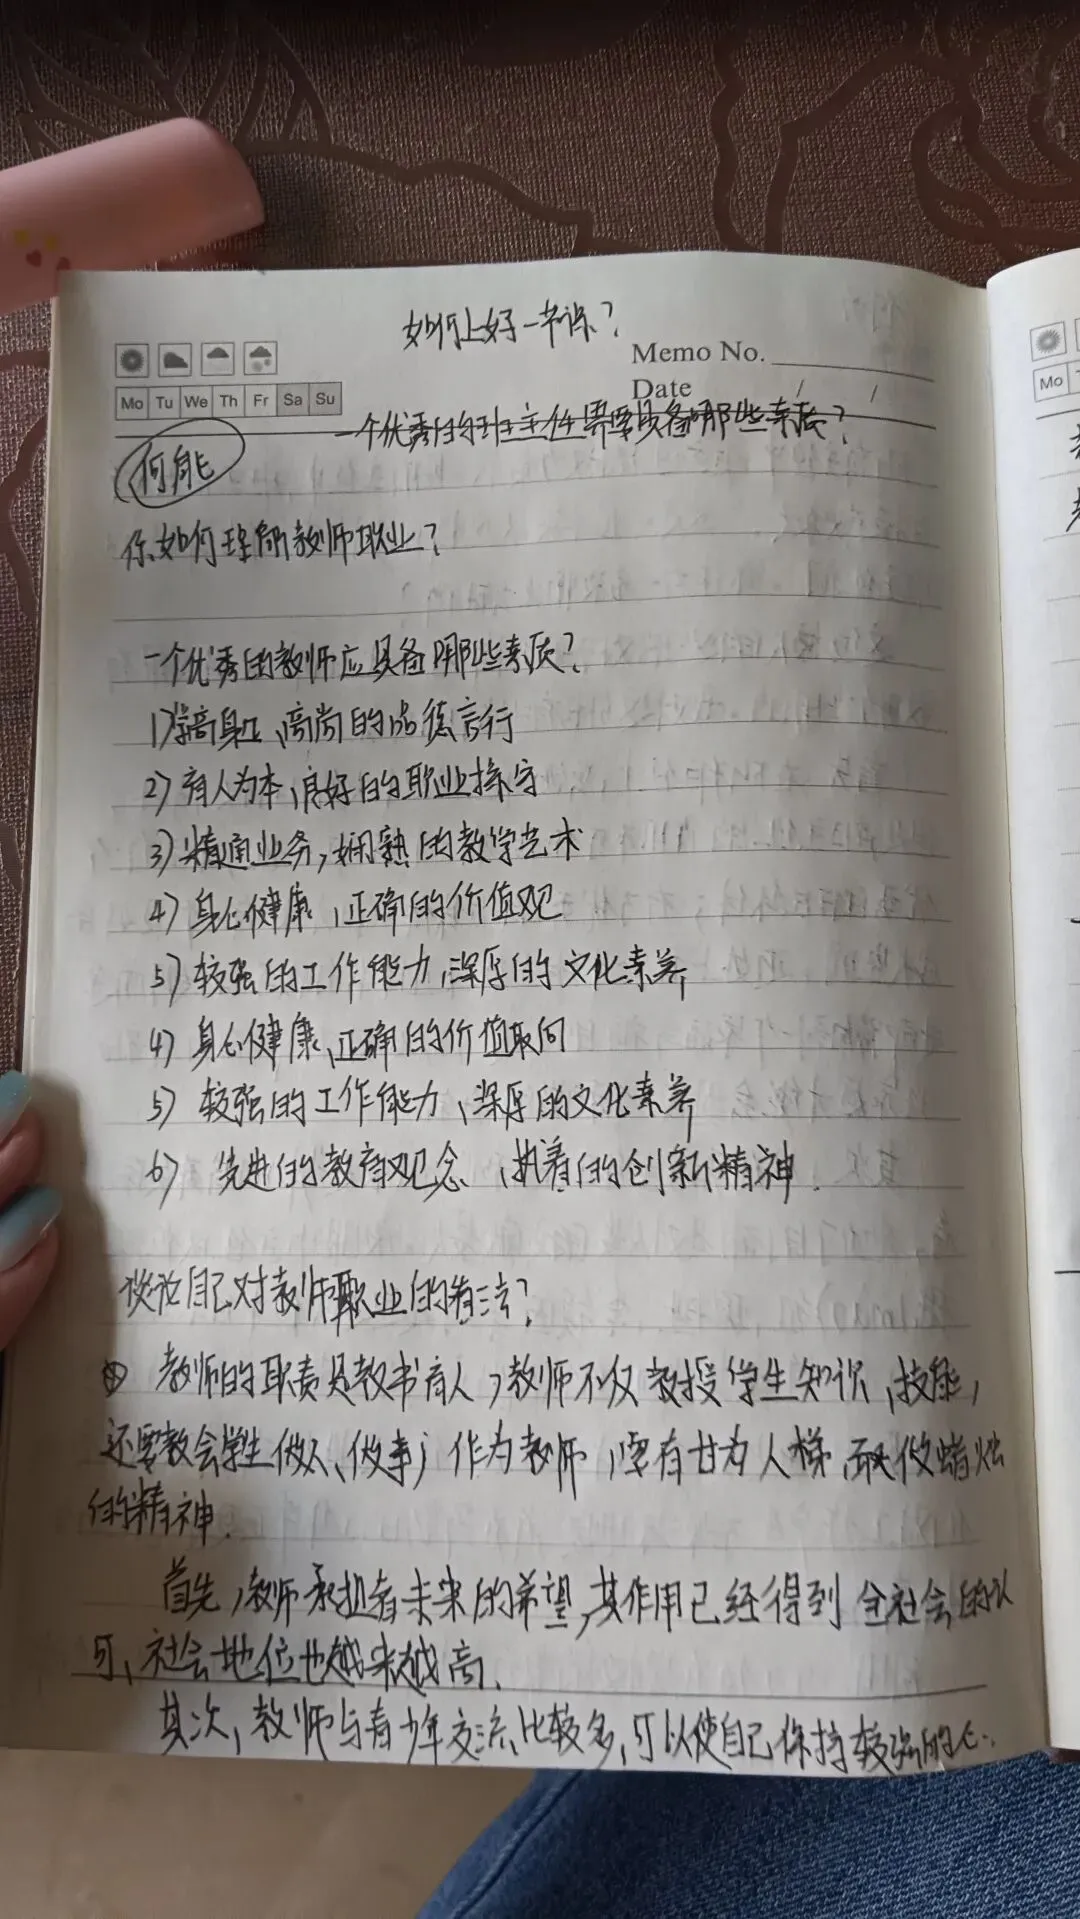 如何上好一节课?
Memo No.
Mo Tu We Th Fr Sa Su
Date / /
一个优秀的班主任需要具备哪些素质?
何能
你如何理解教师职业?
一个优秀的教师应具备哪些素质?
1)学高身正、高尚的品德言行
2)育人为本、良好的职业操守
3)精通业务,娴熟的教学艺术
4)身心健康、正确的价值观
5)较强的工作能力、深厚的文化素养
4)身心健康、正确的价值取向
5)较强的工作能力、深厚的文化素养
6)先进的教育观念、执着的创新精神.
谈谈自己对教师职业的看法?
教师的职责是教书育人,教师不仅教授学生知识、技能,
还要教会学生做人、做事;作为教师,要有甘为人梯、做蜡烛
的精神.
首先,教师承担着未来的希望,其作用已经得到全社会的认
可、社会地位也越来越高、
其次、教师与青少年交流比较多,可以使自己保持较强的心
Mo